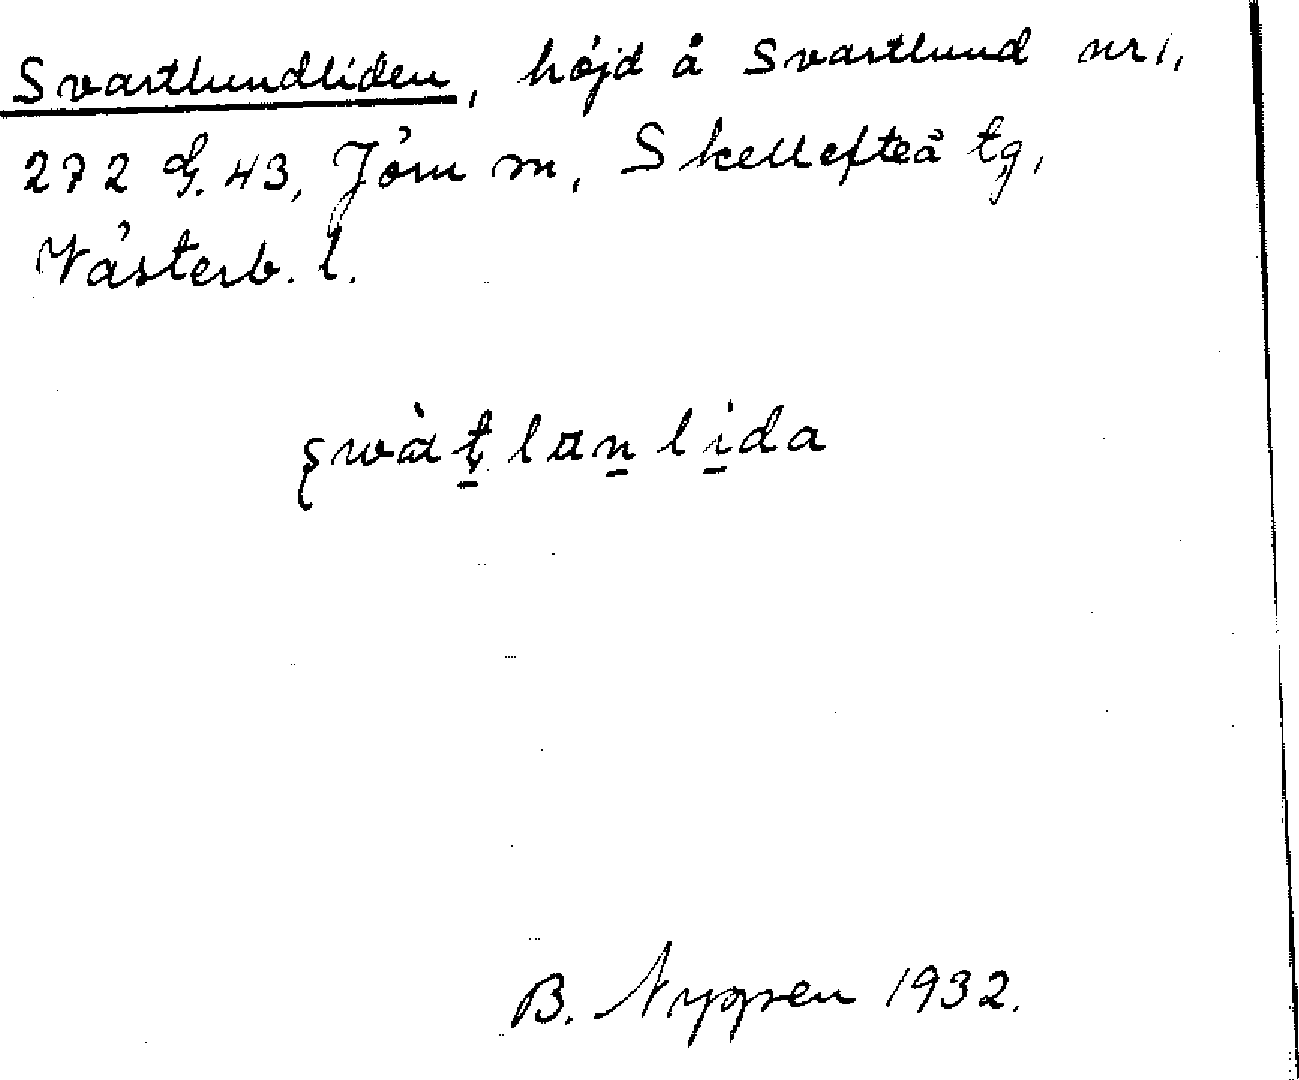 Svartlundliden, höjd å Svartlund nr 1,
272 G. 43, Jörn m, Skellefteå tg,
Västerb. l.
swàt̠lan̠li̠da
B. Nyggren 1932.